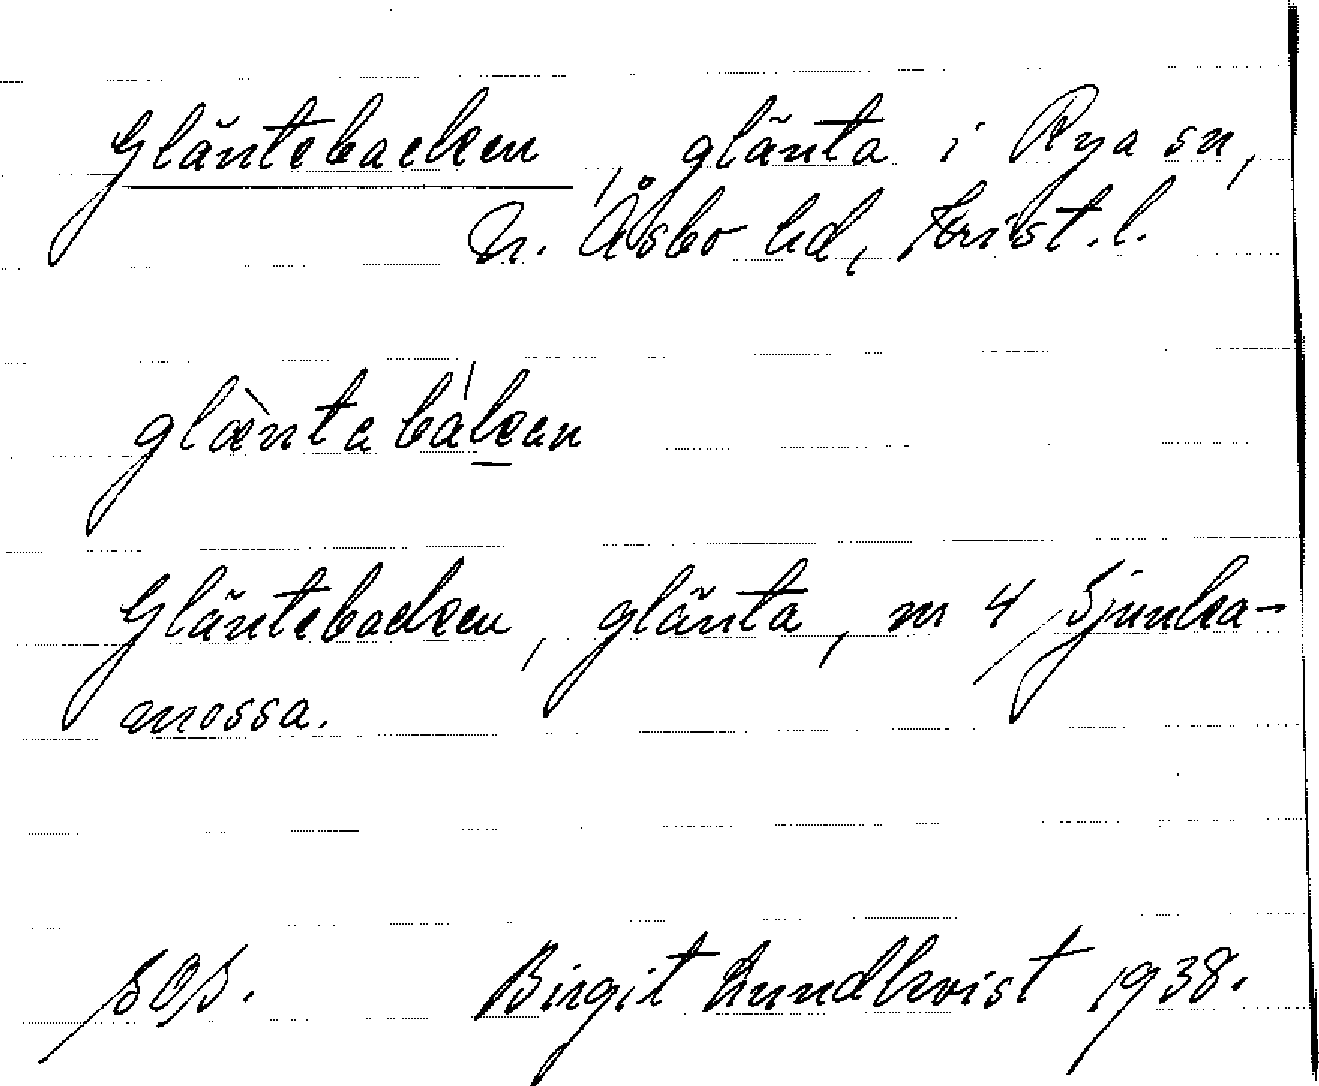 Gläntebacken, glänta i Rya sn,
N. Åsbo hd, Krist. l.
glæ̀ntabàkan
Gläntebacken, glänta, m 4 Sjunka-
mossa.
SOS. Birgit Lundkvist 1938.